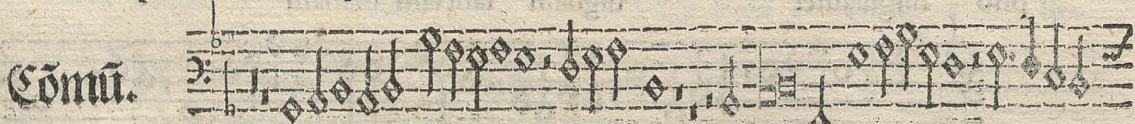 Cõmũ.